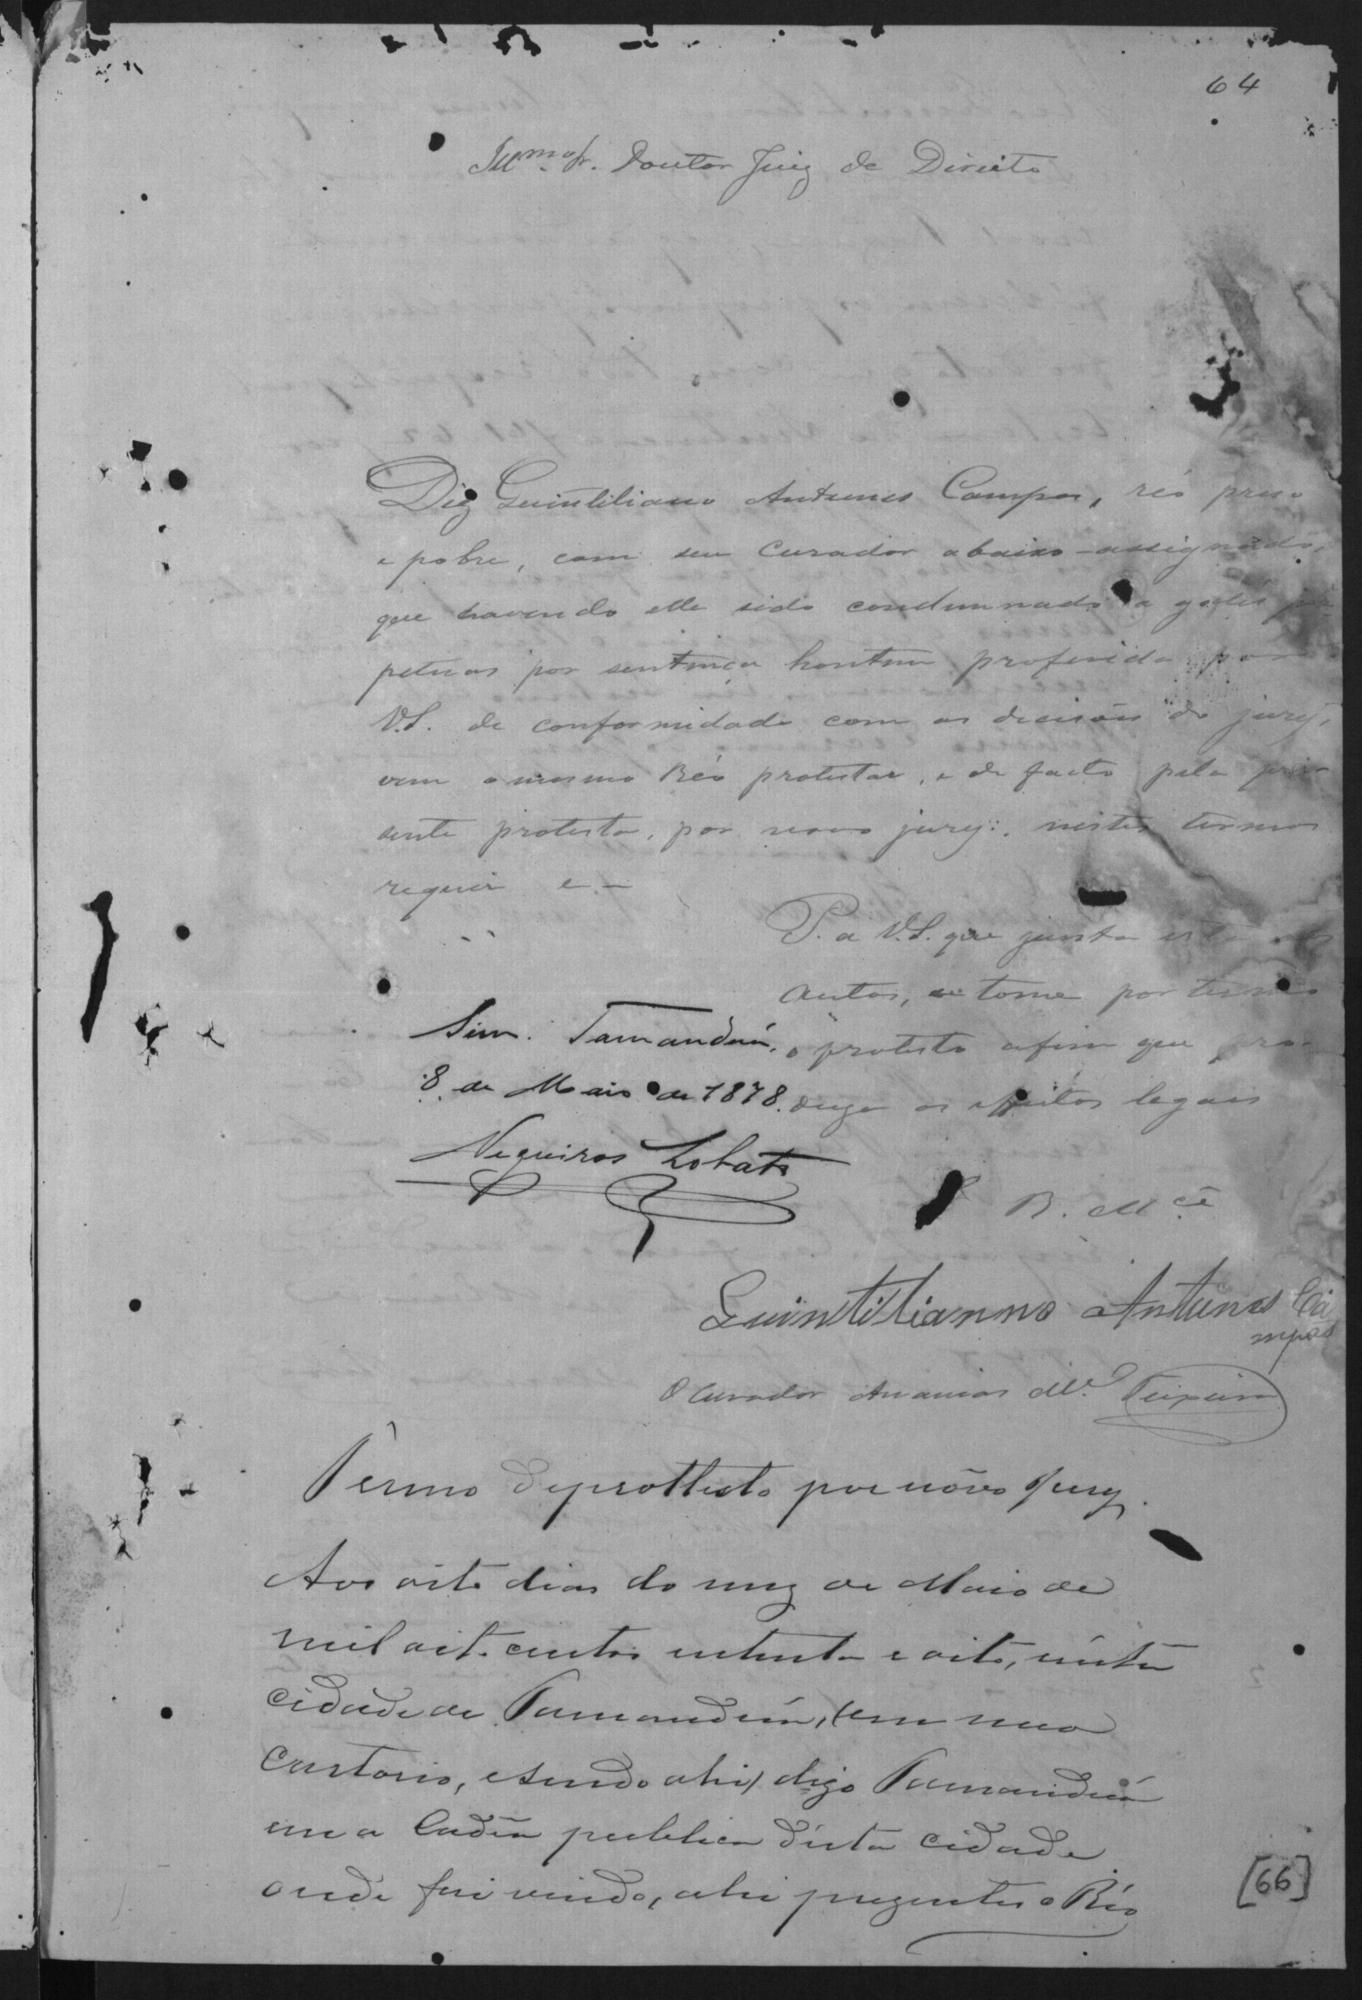 64
Illmo Sr. Doutor Juiz de Direito
Diz Quintiliano Antunes Campos, réo preso
e pobre, com seu Curador abaixo-assignado,
que havendo elle sido condemnado a galés per
petuas por sentença hontem proferida por
V.S. de conformidade com as decisões do jury,
vem o mesmo Réo protestar, e de facto pela pre
sente protesta, por novo jury: nestes termos
requer e -
P. a V.S. que junta esta aos
autos, se tome por termo
o protesto afim que pro-
duza os effeitos legaes
Sim. Tamanduá,
8 de Maio de 1878.
Negueiros Lobato
R. Mce
Quintilianno Antunes Ca
mpos
O Curador Ananias Teixeira
Termo de prottesto por nôvo Jury.
Aos oito dias do mez de Maio de
mil oito centos e setenta e oito, nésta
cidade de Tamanduá, em meu
Cartorio, e sendo ahi, digo Tamanduá
em a Cadêa publica désta cidade
onde fui vindo, ahi prezentes o Réo
[66]